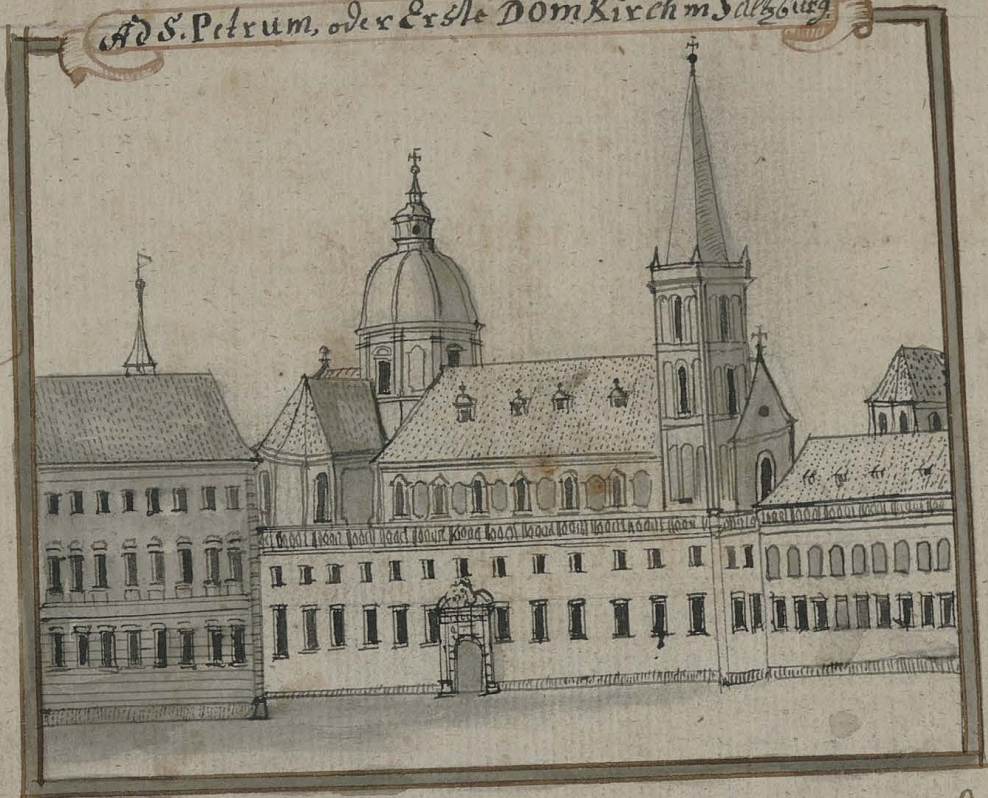 Ad S. Petrum, oder Erste DomKirch in Saltzburg.